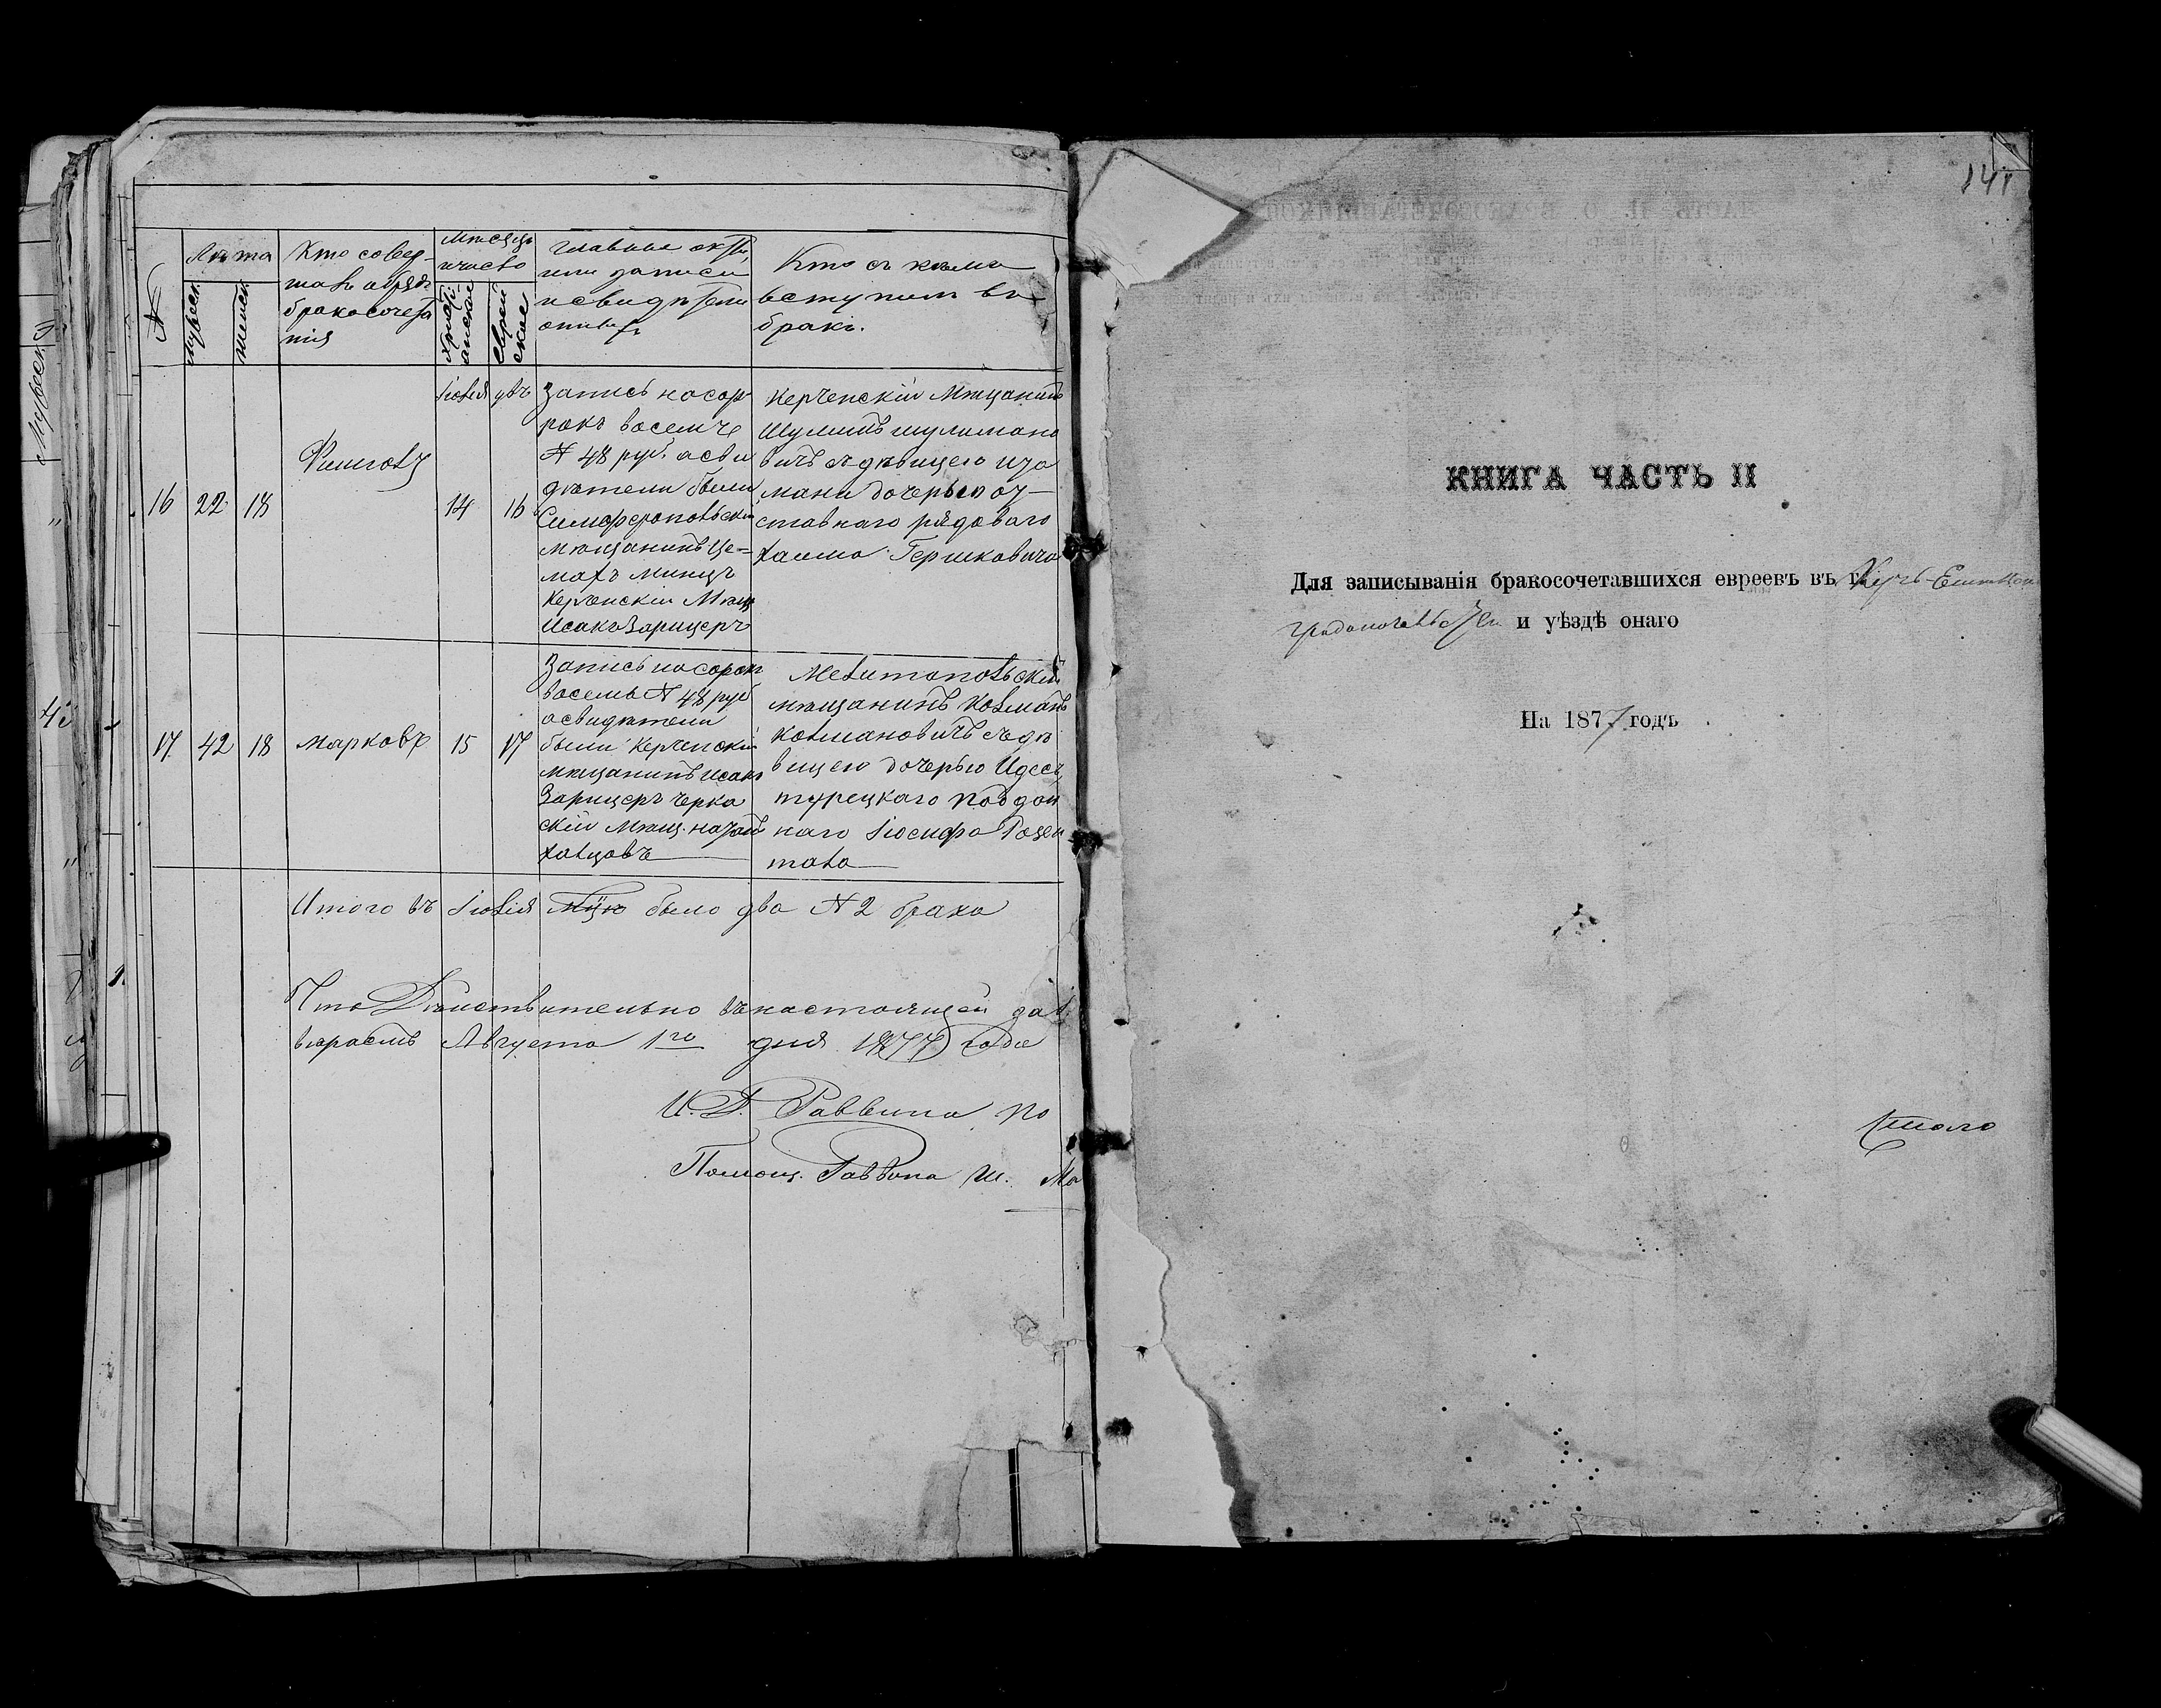 №
Лѣта
мужеск.
женск.
Кто совер-
шалъ обрядъ
бракосочета
нія
Мѣсяцъ
и число
Христі-
анское
Еврей
ское
Главные акты
или записи
и свидѣтели
Кто съ кѣмъ
вступилъ въ
бракъ.
16
22
18
Іюля
14
16
Запись на сор
рокъ восемъ
№ 48 руб. а сви
дѣтели были
Симферопольскій
мѣщанинъ Це=
махъ Минцъ
Керченскій Мѣщ
Исакъ Зарицеръ
Керченскій Мѣщанинъ
Шулимъ Шулимано
вичъ съ дѣвицею
дочерью от-
ставнаго рядоваго
Хаима Гершковича
17
42
18
Марковъ
15
17
Запись на сорок
восемь № 48 руб
а свидѣтели
были Керченскій
мѣщанинъ Исакъ
Зарицеръ Черка
скій Мѣщ.
Мелитопольскій
мѣщанинъ Колманъ
Колмановичъ съ дѣ
вицею дочерью Идесъ
турецкаго поддан
наго Іосифа Розен
тала
Итого въ Іюлѣ было два № 2 брака
Что Дѣйствительно въ настоящей
Августа 1го дня 1877 года
И. Д. Раввина по
Помощ. Раввина Ш. Ма
141
КНИГА ЧАСТЬ II
Для записыванія бракосочетавшихся евреевъ въ г. Керчь-Еник
градоначальст и уѣздѣ онаго
На 1877 годъ